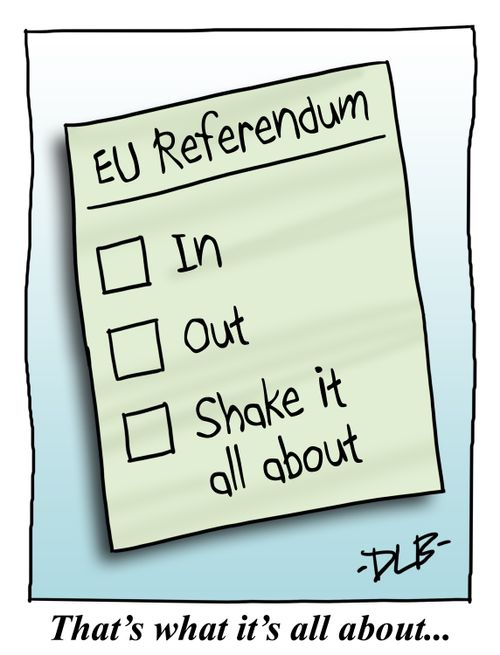 EU Referendum
In
Out
Shake it
all about
-DLB-
That's what it's all about...